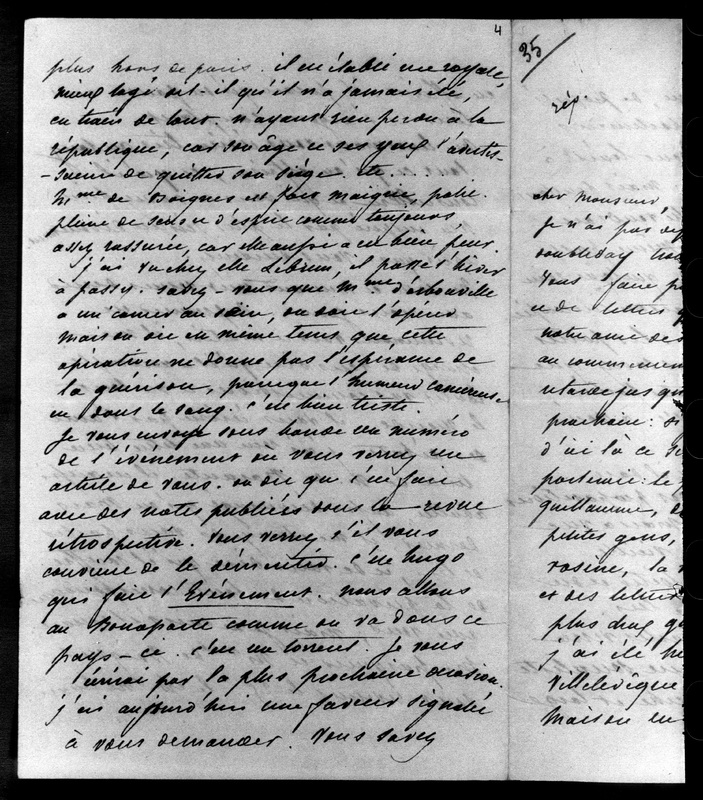 4
plus hors de paris. il est établi rue royale
mieux logé dit-il qu'il n'a jamais été,
en train de tout. n'ayant rien perdu à la
république, car son âge et ses yeux l'avertis-
-saient de quitter son siège. etc...
Mme de Boignes est fort maigre, polie
pleine de sens et d'esprit comme toujours
assez rassurée, car elle aussi a eu bien peur.
j'ai vu chez elle Lebrun, il passe l'hiver
à passy. savez-vous que mme d'arbouville
a un cancer au sein, on doit l'opérer
mais on dit en même tems que cette
opération ne donne pas l'espérance de
la guérison, parceque l'humeur cancéreuse
est dans le sang. c'est bien triste.
Je vous envoye sous bande un numéro
de l'événement où vous verrez un
article de vous. on dit que c'est fait
avec des notes publiées dans la revue
rétrospective. Vous verrez s'il vous
convient de le démentir. c'est hugo
qui fait l'Evénement. nous allons
au Bonaparte comme on va dans ce
pays-ci. c'est un torrent. Je vous
écrirai par la plus prochaine occasion.
j'ai aujourd'hui une faveur signalée
à vous demander. Vous savez
35
rép.
cher monsieur,
Je n'ai pas
doubleday
Vous faire
et de lettres
notre ami de
au commencem
retarde jus qu
prochain: si
d'ici là ce
portrait: le
guillaume, d
petites gens,
rosine, la
et des lettre
plus cinq
j'ai été he
Villelévêque
maison en